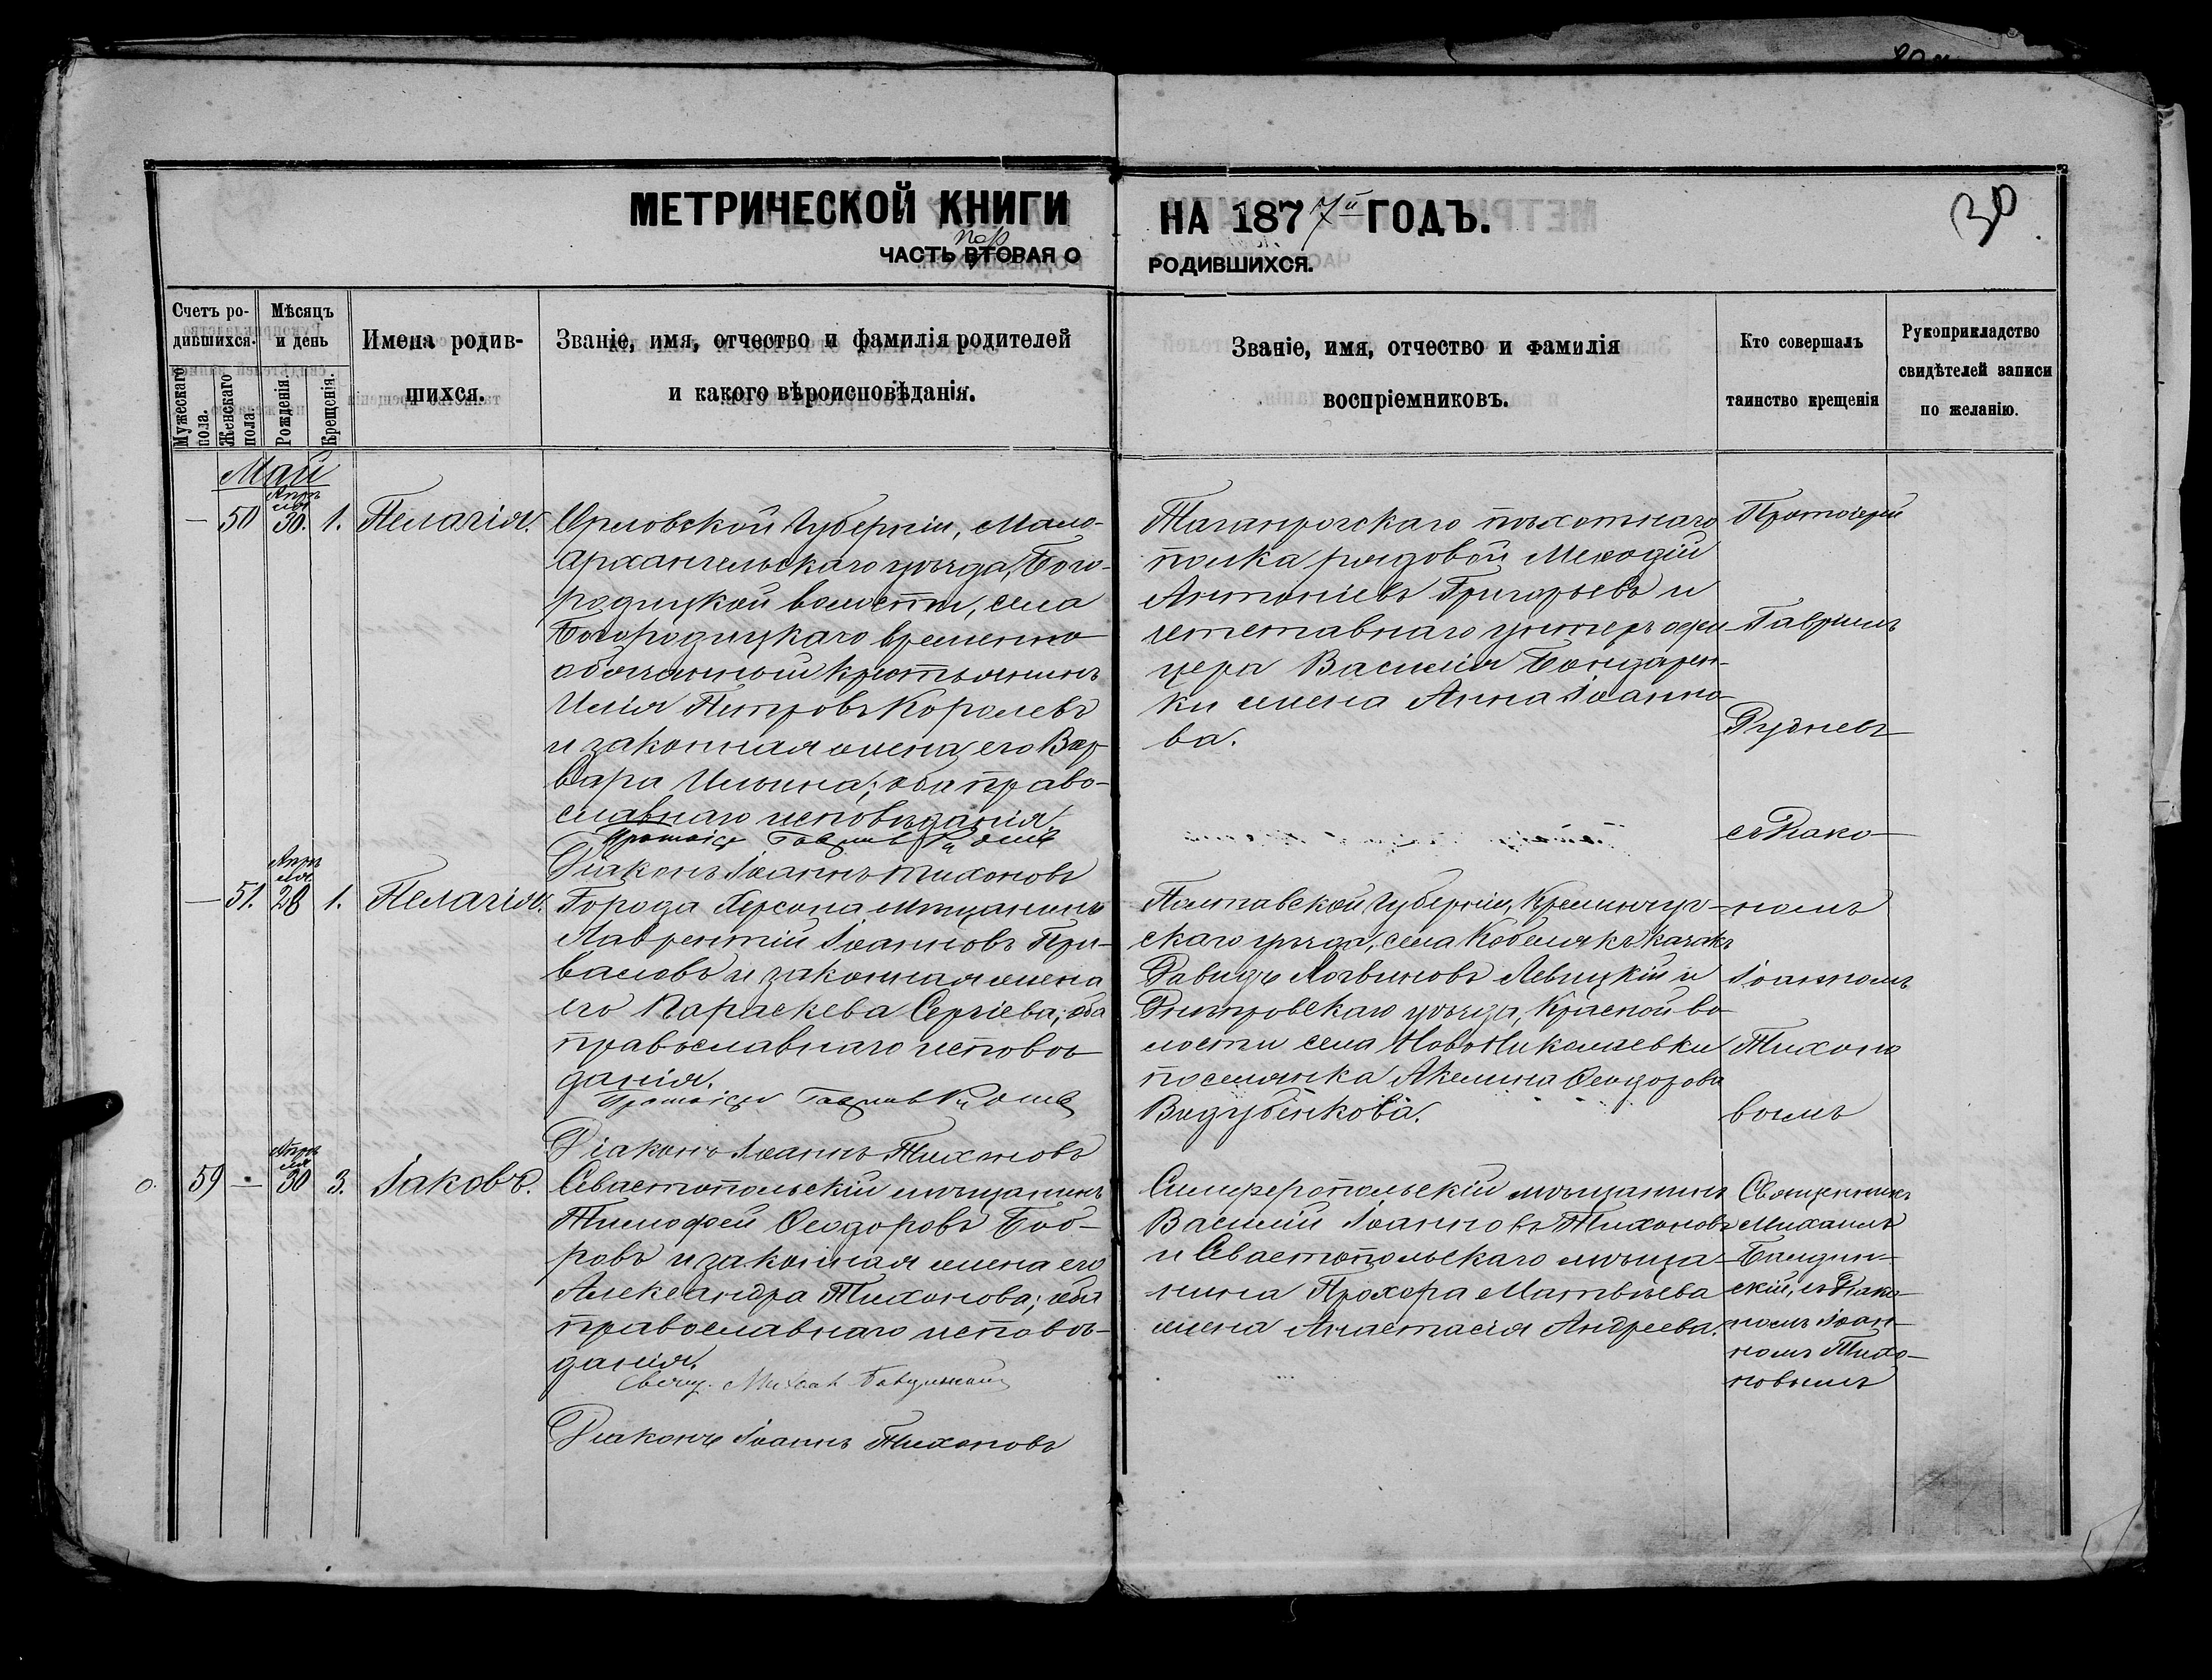 МЕТРИЧЕСКОЙ КНИГИ
НА 1877й ГОДЪ.
30
ЧАСТЬ ВТОРАЯ О
РОДИВШИХСЯ.
Счетъ ро-
дившихся.
Мужескаго
пола.
Женскаго
пола.
Мѣсяцъ
и день
Рожденія.
Крещенія.
Имена родив-
шихся.
Званіе, имя, отчество и фамилія родителей
и какого вѣроисповѣданія.
Званіе, имя, отчество и фамилія
воспріемниковъ.
Кто совершалъ
таинство крещенія
Рукоприкладство
свидѣтелей записи
по желанію.
Май
Апрѣ
ля
— 50 30. 1. Пелагія.
Орловской Губерніи, Мало-
архангельскаго уѣзда, Бого-
родицкой волости, села
Богородицкаго временно
обязанный крестьянинъ
Илія Петровъ Королевъ
и законная жена его Вар-
вара Ильина; оба право-
славнаго исповѣданія
Протоіер Гавріилъ Рудневъ
Діаконъ Іоаннъ Тихоновъ
Таганрогскаго пѣхотнаго
полка рядовой Меѳодій
Антоніевъ Григорьевъ и
отставнаго унтеръ офи
цера Василія Бондарен-
ки жена Анна Іоанно-
ва.
Протоіерей
Гавріилъ
Рудневъ
съ Діако-
номъ
Іоанномъ
Тихоно
вымъ
Апрѣ
ля
— 51. 28 1. Пелагія.
Города Херсона мѣщанинъ
Лаврентій Іоанновъ При-
валовъ и законная жена
его Параскева Сергіева; оба
православнаго исповѣ-
данія.
Протоіер Гавріилъ Рудневъ
Діаконъ Іоаннъ Тихоновъ
Полтавской Губерніи, Кременчуг-
скаго уѣзда, села Кобелякъ казакъ
Давидъ Логвиновъ Левицкій и
Днѣпровскаго уѣзда, Красной во
лости села НовоНиколаевки
поселянка Акилина Ѳеодорова
Видубенкова.
Апрѣ
ля
59 — 30 3. Іаковъ.
Севастопольскій мѣщанинъ
Тимофей Ѳеодоровъ Боб-
ровъ и законная жена его
Александра Тихонова; оба
православнаго исповѣ-
данія.
Свящ. Михаил
Діаконъ Іоаннъ Тихоновъ
Симферопольскій мѣщанинъ
Василій Іоанновъ Тихоновъ
и Севастопольскаго мѣща-
нина Прохора Матвѣева
жена Анастасія Андреева.
Священникъ
Михаилъ
скій, съ Діако-
номъ Іоан-
номъ Тихо-
новымъ